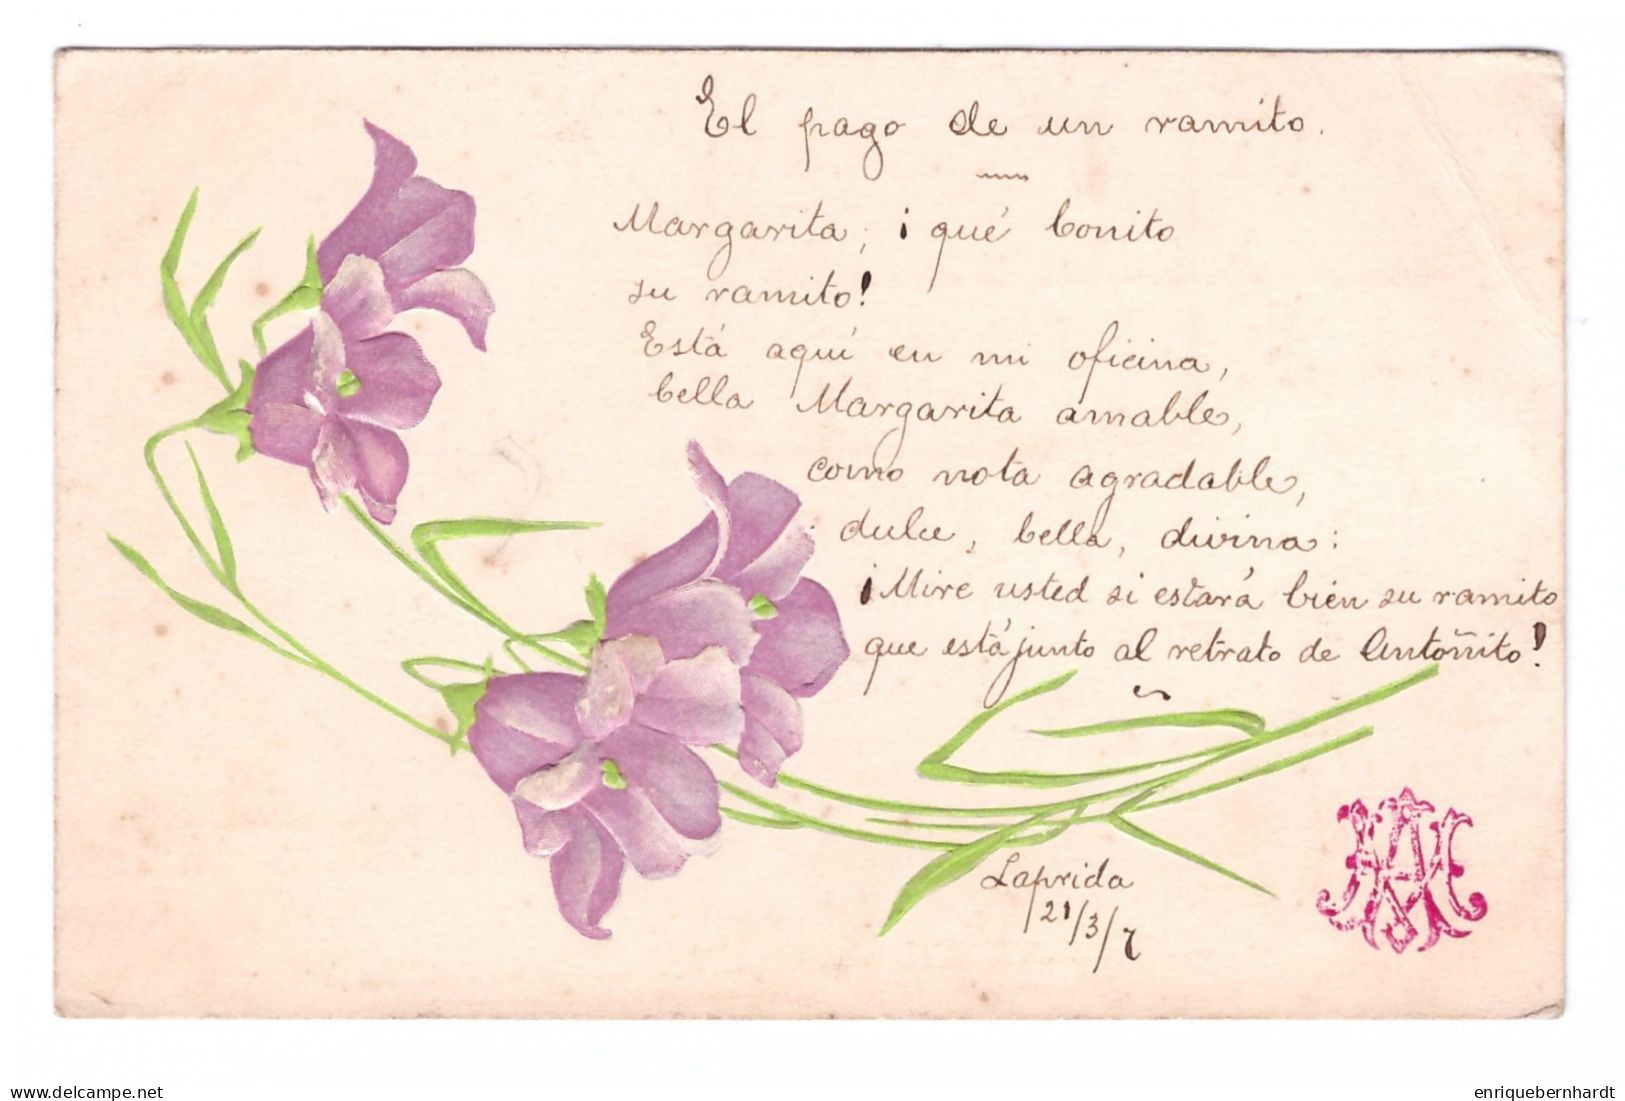 El pago de un ramito.
Margarita, ¡qué bonito
su ramito!
Está aquí en mi oficina,
bella Margarita amable,
como nota agradable,
dulce, bella, divina:
¡Mire usted si estará bien su ramito
que está junto al retrato de Antoñito!
Laprida
21/3/7
delcampe.net
enriquebernhardt